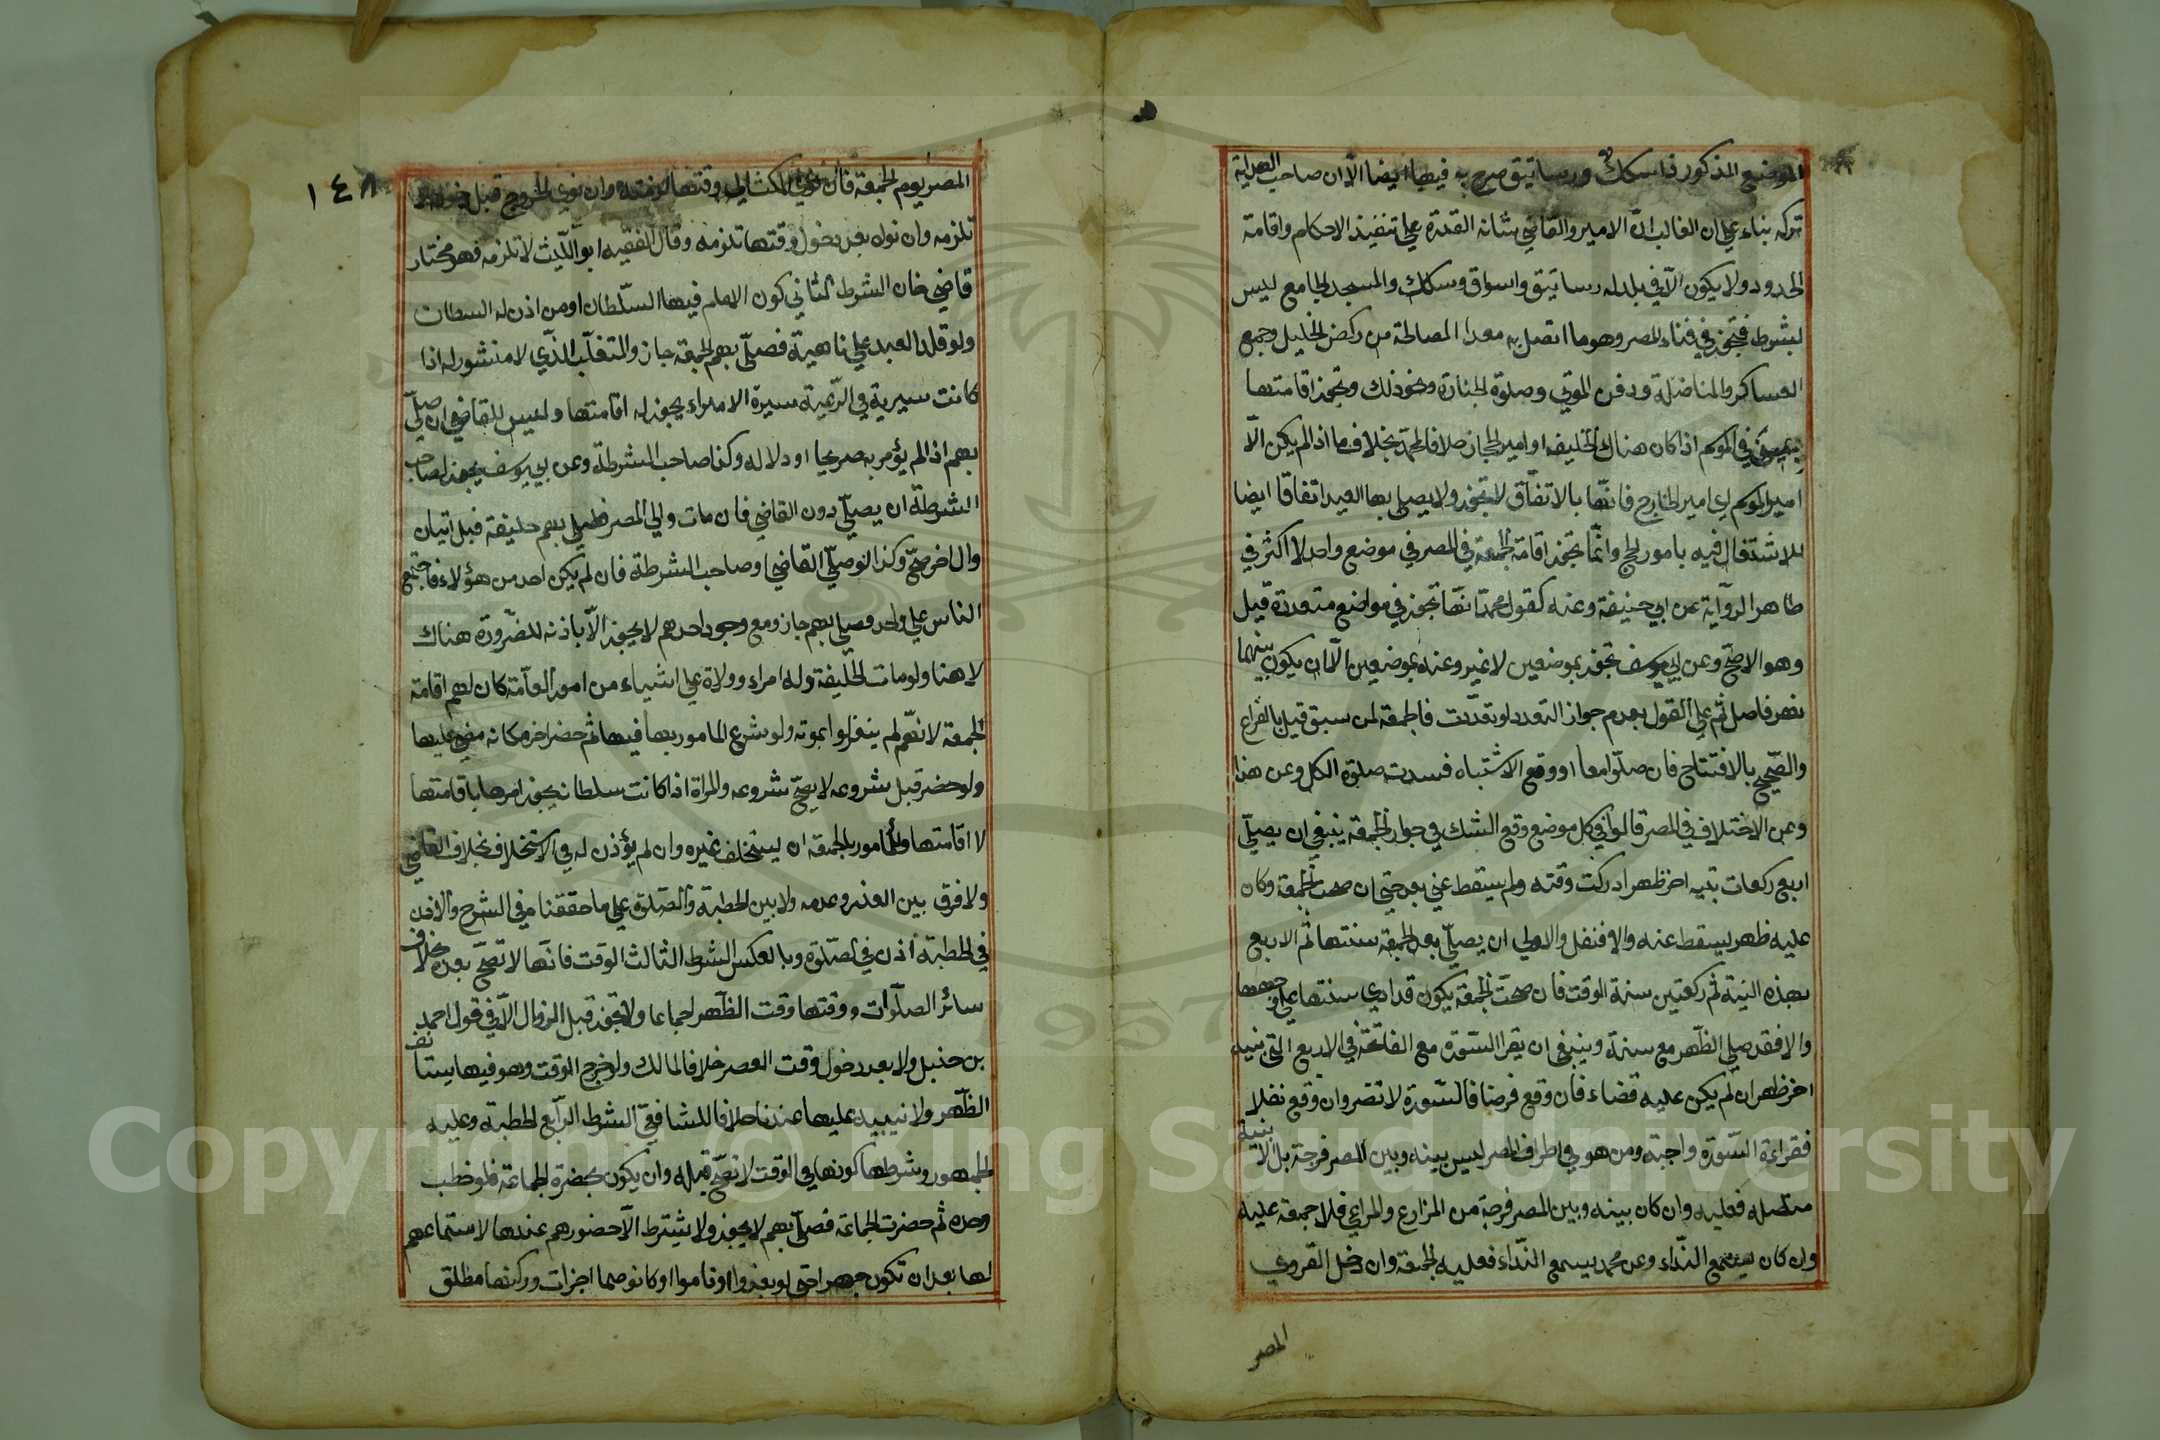 الموضع المذكور فاسكك ورساتيق صرح به فيها ايضا الّا ان صاحب الهداية
تركه بناء علي ان الغالب انّ الامير والقاضي شانه القدرة علي تنفيذ الاحكام واقامة
الحدود ولا يكون الّا في بلد له رساتيق واسواق وسكك والمسجد الجامع ليس
بشرط فتجوز في فناء المصر وهو ما اتصل به معدا لمصالحة من ركض الخليل وجمع
العساكر والمناضلة ودفن الموتي وصلوة الجنازة ونحو ذلك وتجوز اقامتها
بمني في الموسم اذا كان هناك الخليفه او امير الحجاز خلافا لمحمد بخلاف ما اذا لم يكن الّا
امير الموسم اي امير الحاج فانّها بالاتفاق لا تجوز ولا يصلي بها العيد اتفاقا ايضا
للاشتغال فيه بامور الحج وانّما تجوز اقامة الجمعة في المصر في موضع واحد لا اكثر في
ظاهر الروآية عن ابي حنيفة وعنه كقول محمد انّها تجوز في مواضع متعددة قيل
وهو الاصحّ وعن ابي يوسف تجوز بموضعين لا غير وعنه بموضعين الّا ان يكون بينهما
نهر فاصل ثم علي القول بعدم جواز التعدد لو تعددت فالجمعة لمن سبق قيل بالفراغ
والصّحيح بالافتتاح فان صلّوا معا او وقع الاشتباه فسدت صلوة الكل وعن هذا
وعن الاختلاف في المصر قالوا في كل موضع وقع الشك في جواز الجمعة ينبغي ان يصلّي
اربع ركعات بنيه اخر ظهر ادركت وقته ولم يسقط عني بعد حتي ان صحت الجمعة وكان
عليه ظهر ليسقط عنه والا فنفل والاولي ان يصلّي بعد الجمعة سنتها ثم الاربع
بهذه النية ثم ركعتين سنة الوقت فان صحّت الجمعة يكون قد ادي سنتها علي وجهها
والا فقد صلي الظّهر مع سنة وينبغي ان يقرا السّورة مع الفاتحة في الاربع التي بنيه
اخر ظهر ان لم يكن عليه قضاء فان وقع فرضا فالسّورة لا تضر وان وقع نفلا
فقراءة السّورة واجبة ومن هو في اطراف المصر ليس بينه وبين المصر فرجة بل الابنية
متصله فعليه وان كان بينه وبين المصر فرجة من المزارع والمراعي فلا جمعة عليه
وان كان يسمع النّداء وعن محمد يسمع النّداء فعليه الجمعة وان دخل القروي
المصر
١٤٨
المصر يوم الجمعة فان نوي المكث الي وقتها لزمته وان نوي الخروج قبل دخوله لا
تلزمه وان نواه بعد دخول وقتها تلزمه وقال الفقيه ابو اللّيث لا تلزمه فهو مختار
قاضي خان الشرط الثاني كون الامام فيها السّلطان او من اذن له السطان
ولو قلد العبد علي ناحية فصلّي بهم الجمعة جاز والمتغلّب الّذي لا منشور له اذا
كانت سيرية في الرّعية سيرة الامراء يجوز له اقامتها وليس للقاضي ان يصلّي
بهم اذا لم يؤمر به صريحا او دلاله وكذا صاحب الشرطة وعن ابي يوسف يجوز لصاحب
الشرطة ان يصلّي دون القاضي فان مات والي المصر فصلي بهم خليفة قبل اتيان
وال اخر صحّ وكذا لو صلّي القاضي او صاحب الشرطة فان لم يكن احد من هؤلاء فاجتمع
الناس علي واحد فصلي بهم جاز ومع وجود احدهم لا يجوز الّا باذنه للضّرورة هناك
لا هنا ولو مات الخليفة وله امراء وولاة علي اشياء من امور العامّة كان لهم اقامة
الجمعة لانهّم لم ينعزلوا بموته ولو شرع المامور بها فيها ثم حضر اخر مكانه مضي عليها
ولو حضر قبل شروعه لا يصحّ شروعه والمراة اذا كانت سلطانا يجوز امرها باقامتها
لا اقامتها والمامور بالجمعة ان يستخلف غيره وان لم يؤذن له في الاستخلاف بخلاف القاضي
ولا فرق بين العذر وعدمه ولا بين الخطبة والصّلوة علي ما حققنا في الشرح والاذن
في الخطبة اذن في الصّلوة وبالعكس الشرط الثالث الوقت فانّها لا تصحّ بعده بخلاف
سائر الصلوات ووقتها وقت الظّهر اجماعا ولا تجوز قبل الزوال الّا في قول احمد
بن حنبل ولا بعد دخول وقت العصر خلافا لمالك ولو خرج الوقت وهو فيها يستانف
الظّهر ولا نيبيه عليها عندنا خلافا للشافعيّ الشرط الرّابع الخطبة وعليه
الجمهور وشرطها كونها في الوقت لا تصحّ قبله وان يكون بحضرة الجماعة فلو خطب
وحده ثم حضرت الجماعة فصلّي بهم لا يجوز ولا يشترط الّا حضورهم عندها لا استماعهم
لها بعد ان تكون جهرا حتي لو بعدوا او ناموا او كانوا صما اجزات وركنها مطلق
Copyright © King Saud University
1957